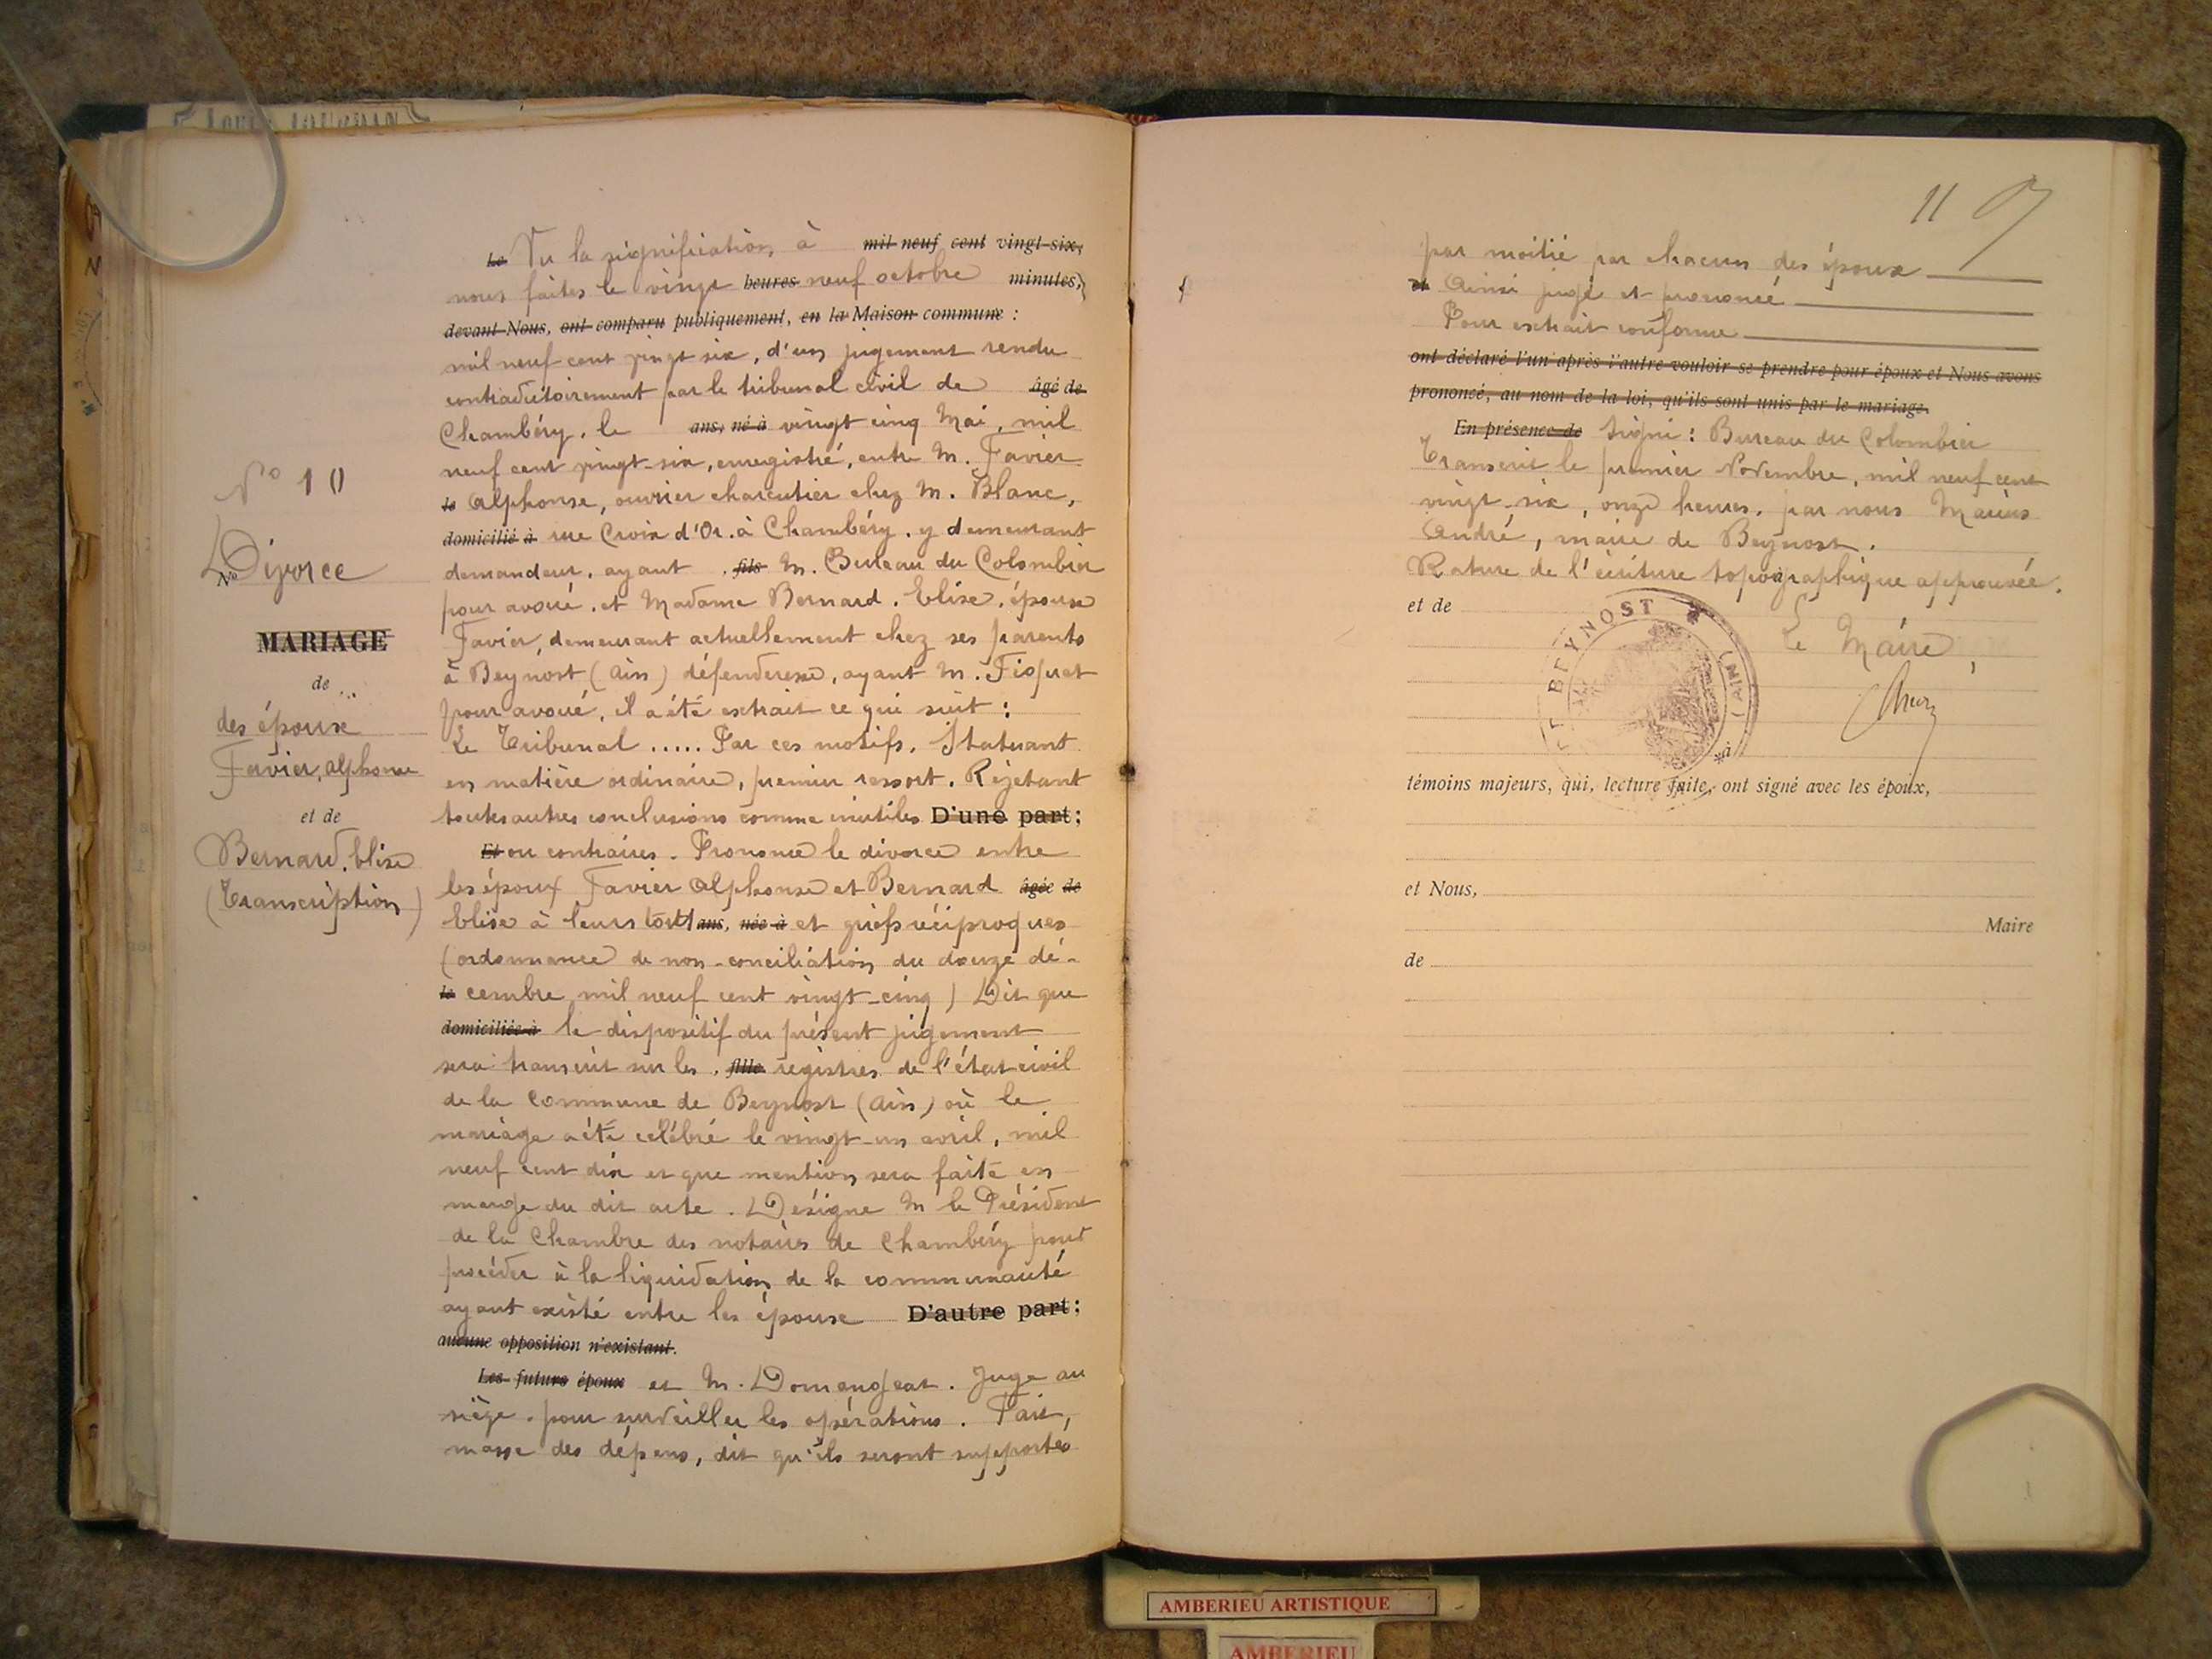 N° 10
Divorce
N°
MARIAGE
de
des époux
Favier, Alphonse
et de
Bernard, Elise
(Transcription)
Le Vu la signification, à mil neuf cent vingt-six,
nous faites le vingt heures neuf octobre minutes,
devant Nous, ont comparu publiquement, en la Maison commune :
mil neuf cent vingt six, d'un jugement rendu
contradictoirement par le tribunal civil de âgé de
Chambéry, le ans, né à vingt cinq Mai, mil
neuf cent vingt-six, enregistré, entre M. Favier
le Alphonse, ouvrier charcutier chez M. Blanc,
domicilié à rue Croix d'Or. à Chambéry, y demeurant
demandeur, ayant , fils M. Bureau du Colombier
pour avoué, et Madame Bernard, Elise, épouse
Favier, demeurant actuellement chez ses parents
à Beynost (Ain) défenderesse, ayant M. Fisquet
pour avoué, il a été extrait ce qui suit :
Le Tribunal ..... Par ces motifs, Statuant
en matière ordinaire, premier ressort. Rejetant
toutes autres conclusions comme inutiles D'une part ;
Et ou contraires. Prononce le divorce entre
les époux Favier Alphonse et Bernard âgée de
Elise à leurs torts ans, née à et griefs réciproques
(ordonnance de non-conciliation du douze dé-
le cembre mil neuf cent vingt-cinq) Dit que
domiciliée à le dispositif du présent jugement
sera transcrit sur les , fille registres de l'état civil
de la Commune de Beynost (Ain) où le
mariage a été célébré le vingt-un avril, mil
neuf cent dix et que mention sera faite en
marge du dit acte. Désigne M le Président
de la Chambre des notaires de Chambéry pour
procéder à la liquidation de la communauté
ayant existé entre les époux D'autre part ;
aucune opposition n'existant.
Les futurs époux et M. Domengeat. Juge au
siège. pour surveiller les opérations. Fait,
masse des dépens, dit qu'ils seront supportés
11
par moitié par chacun des époux
et Ainsi jugé et prononcé
Pour extrait conforme
ont déclaré l'un après l'autre vouloir se prendre pour époux et Nous avons
prononcé, au nom de la loi, qu'ils sont unis par le mariage.
En présence de Signé : Bureau du Colombier
Transcrit le premier Novembre, mil neuf cent
vingt-six, onze heures, par nous Marius
André, maire de Beynost.
Rature de l'écriture topographique approuvée.
et de
Le Maire,
BEYNOST (AIN)
à
témoins majeurs, qui, lecture faite, ont signé avec les époux,
et Nous,
Maire
de
AMBERIEU ARTISTIQUE
AMBERIEU